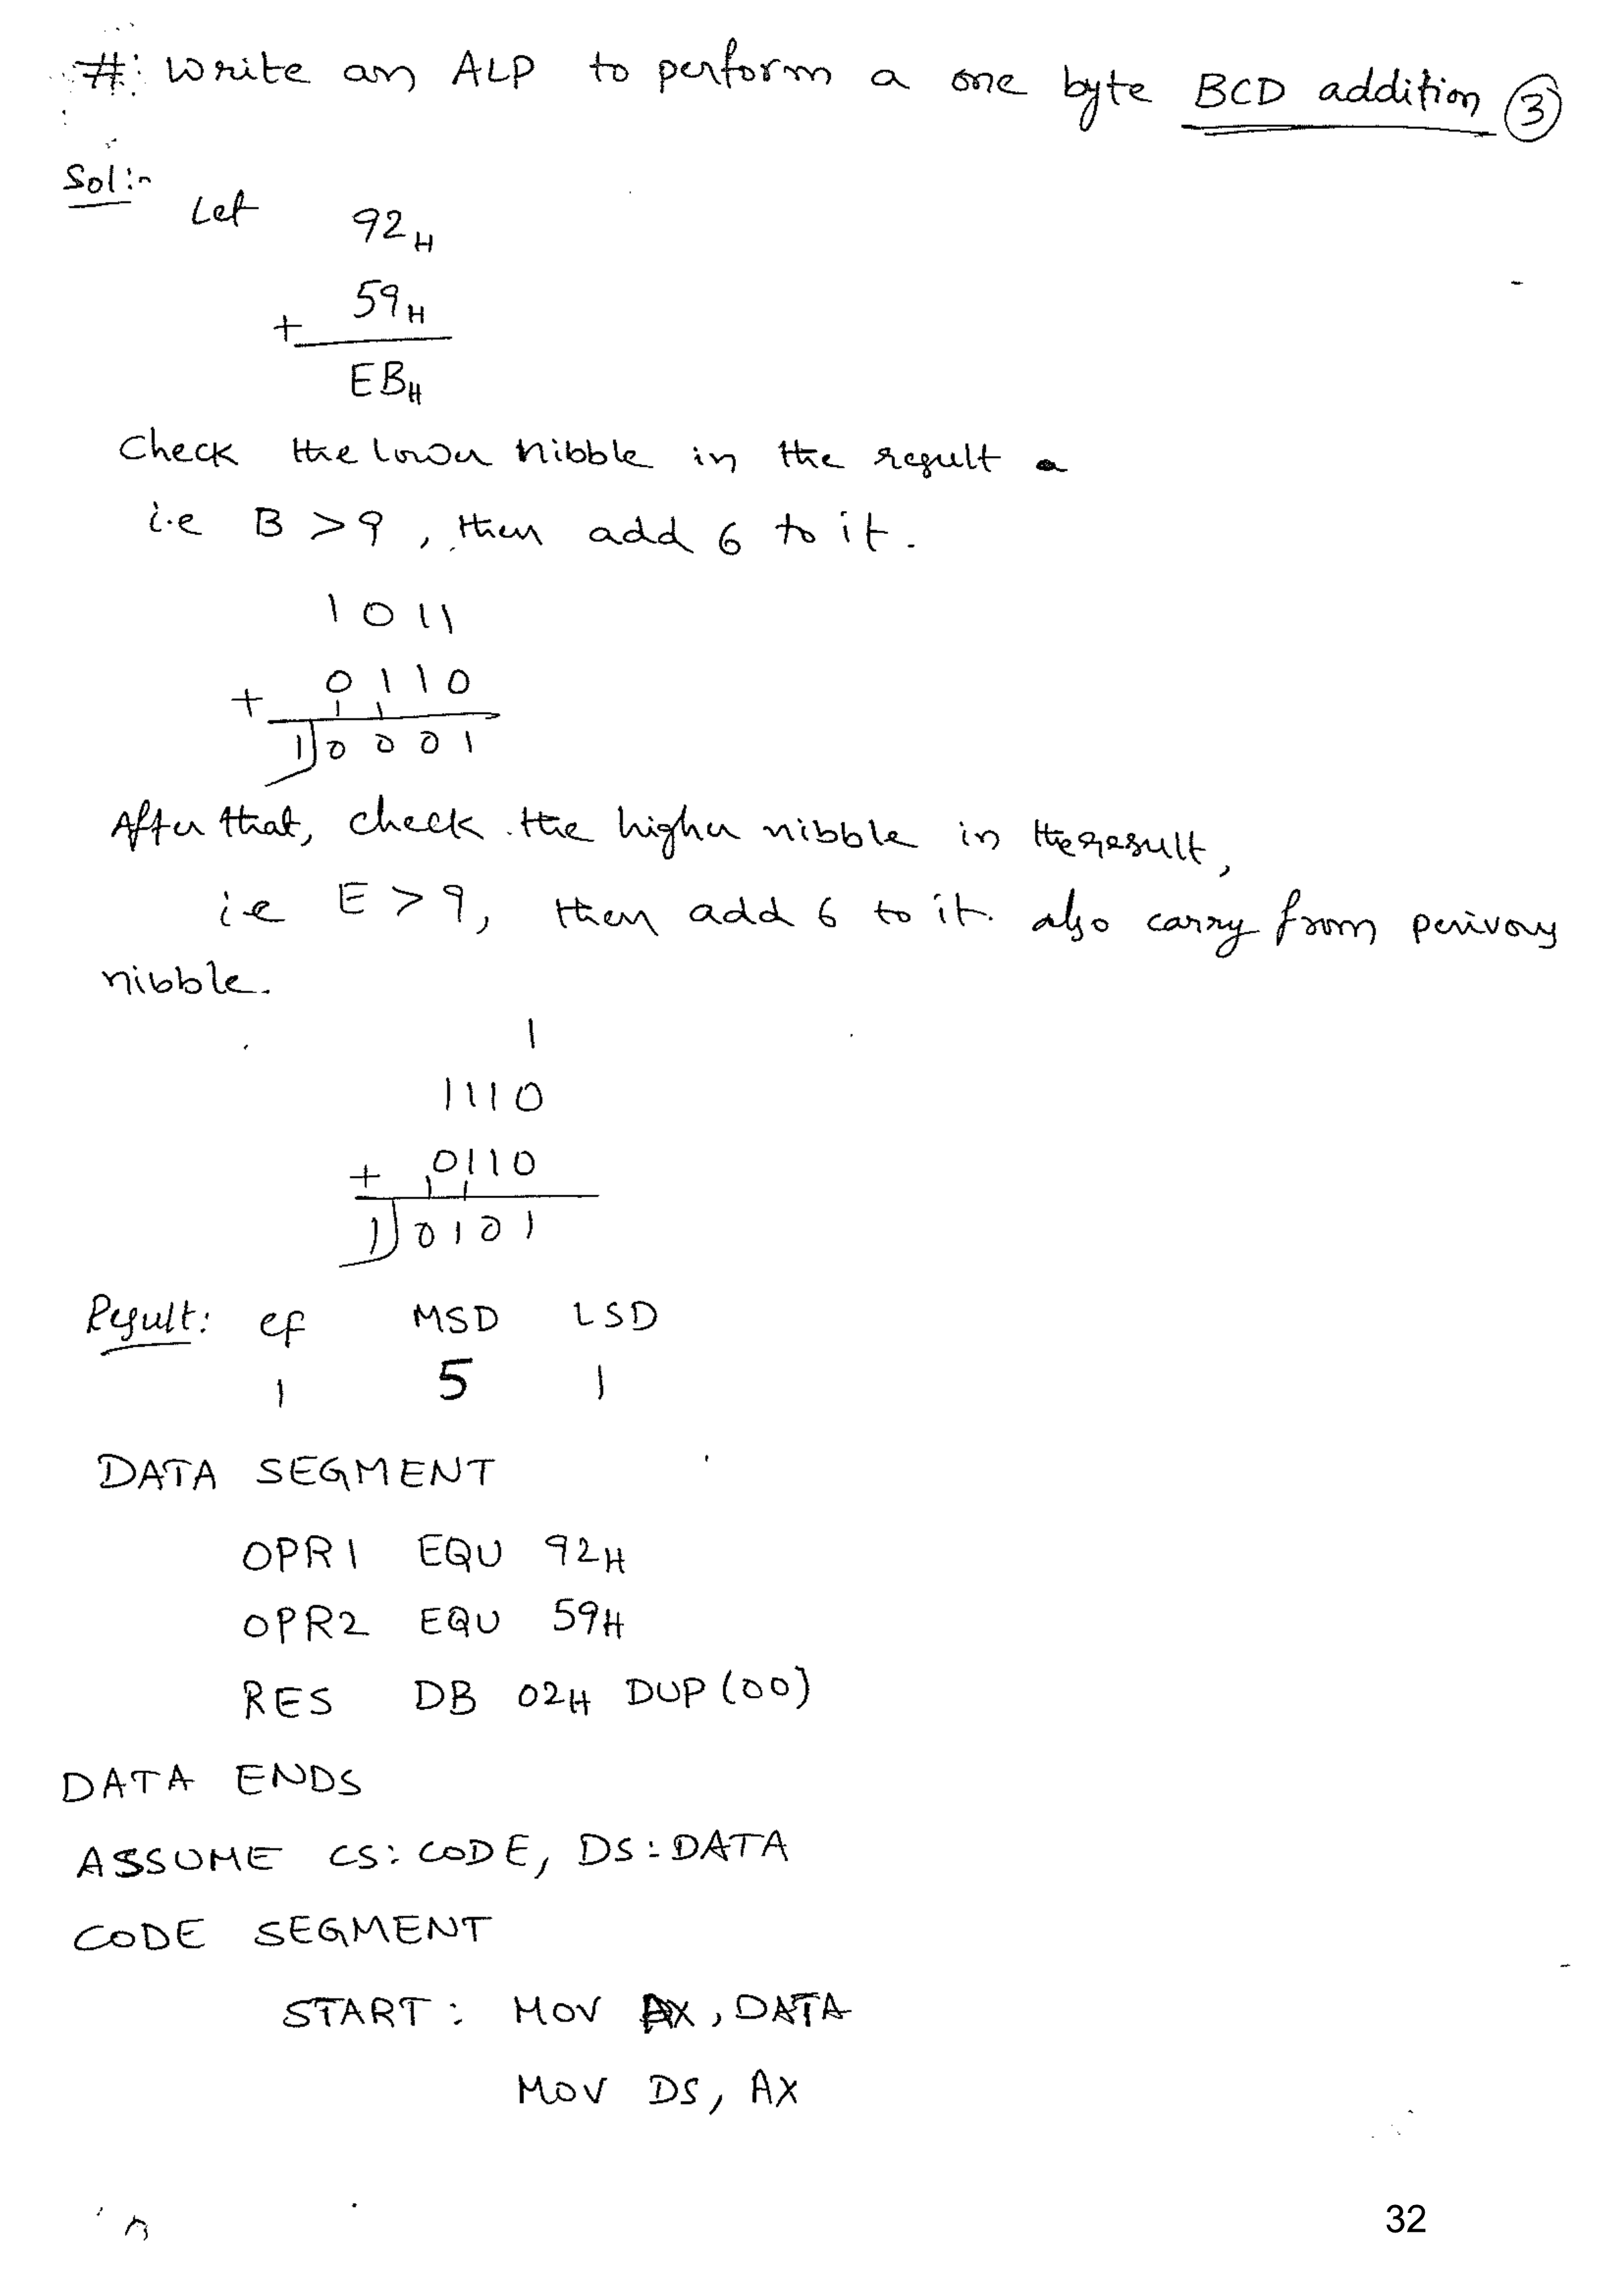 #: Write an ALP to perform a one byte BCD addition 3
Sol:-
Let 92H
59H
+
EBH
Check the lower nibble in the result
i.e B > 9, then add 6 to it.
1 0 1 1
0 1 1 0
+ 1 1
1 0 0 0 1
After that, check the higher nibble in the result,
i.e E > 9, then add 6 to it. also carry from perivous
nibble.
1
1110
+ 0110
1 1
1 0101
Result: cf MSD LSD
1 5 1
DATA SEGMENT
OPR1 EQU 92H
OPR2 EQU 59H
RES DB 02H DUP(00)
DATA ENDS
ASSUME CS:CODE, DS:DATA
CODE SEGMENT
START: MOV AX, DATA
MOV DS, AX
32